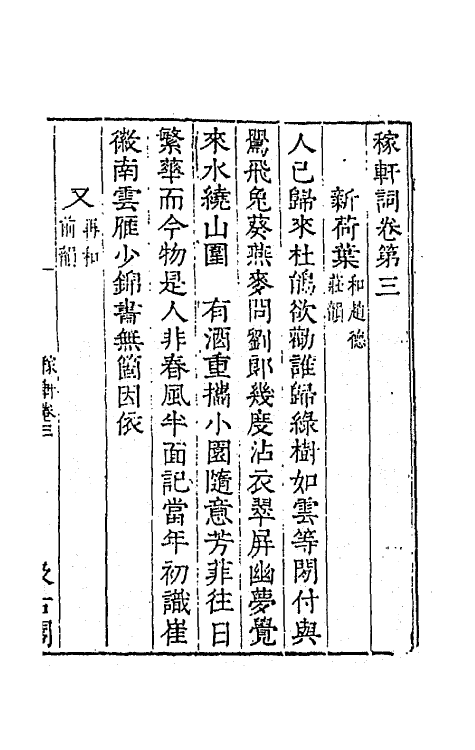 稼軒詞卷第三
新荷葉 和趙德莊韻
人已歸來杜鵑欲勸誰歸綠樹如雲等閒付與
鶯飛兔葵燕麥問劉郎幾度沾衣翠屏幽夢覺
來水繞山圍　有酒重攜小園隨意芳菲往日
繁華而今物是人非春風半面記當年初識崔
徽南雲雁少錦書無箇因依
又 再和前韻
稼軒卷三
汲古閣